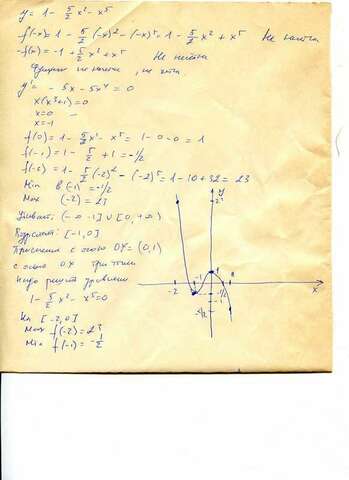 y = 1 - 5/2 x² - x⁵
f(-x) = 1 - 5/2 (-x)² - (-x)⁵ = 1 - 5/2 x² + x⁵ Не
-f(x) = -1 + 5/2 x² + x⁵ Не
Функция не , не
y' = -5x - 5x⁴ = 0
x(x³+1) = 0
x = 0
x = -1
f(0) = 1 - 5/2 x² - x⁵ = 1 - 0 - 0 = 1
f(-1) = 1 - 5/2 + 1 = -1/2
f(-2) = 1 - 5/2 (-2)² - (-2)⁵ = 1 - 10 + 32 = 23
Min в (-1) = -1/2
Max (-2) = 23
Убывает: (-∞ -1] ∪ [0, +∞)
Возрастает: [-1, 0]
с осью OY = (0, 1)
с осью OX три точки
Надо решить уравнение
1 - 5/2 x² - x⁵ = 0
На [-2, 0]
Max f(-2) = 23
Min f(-1) = -1/2
y
-2
-1
1
-1/2
x